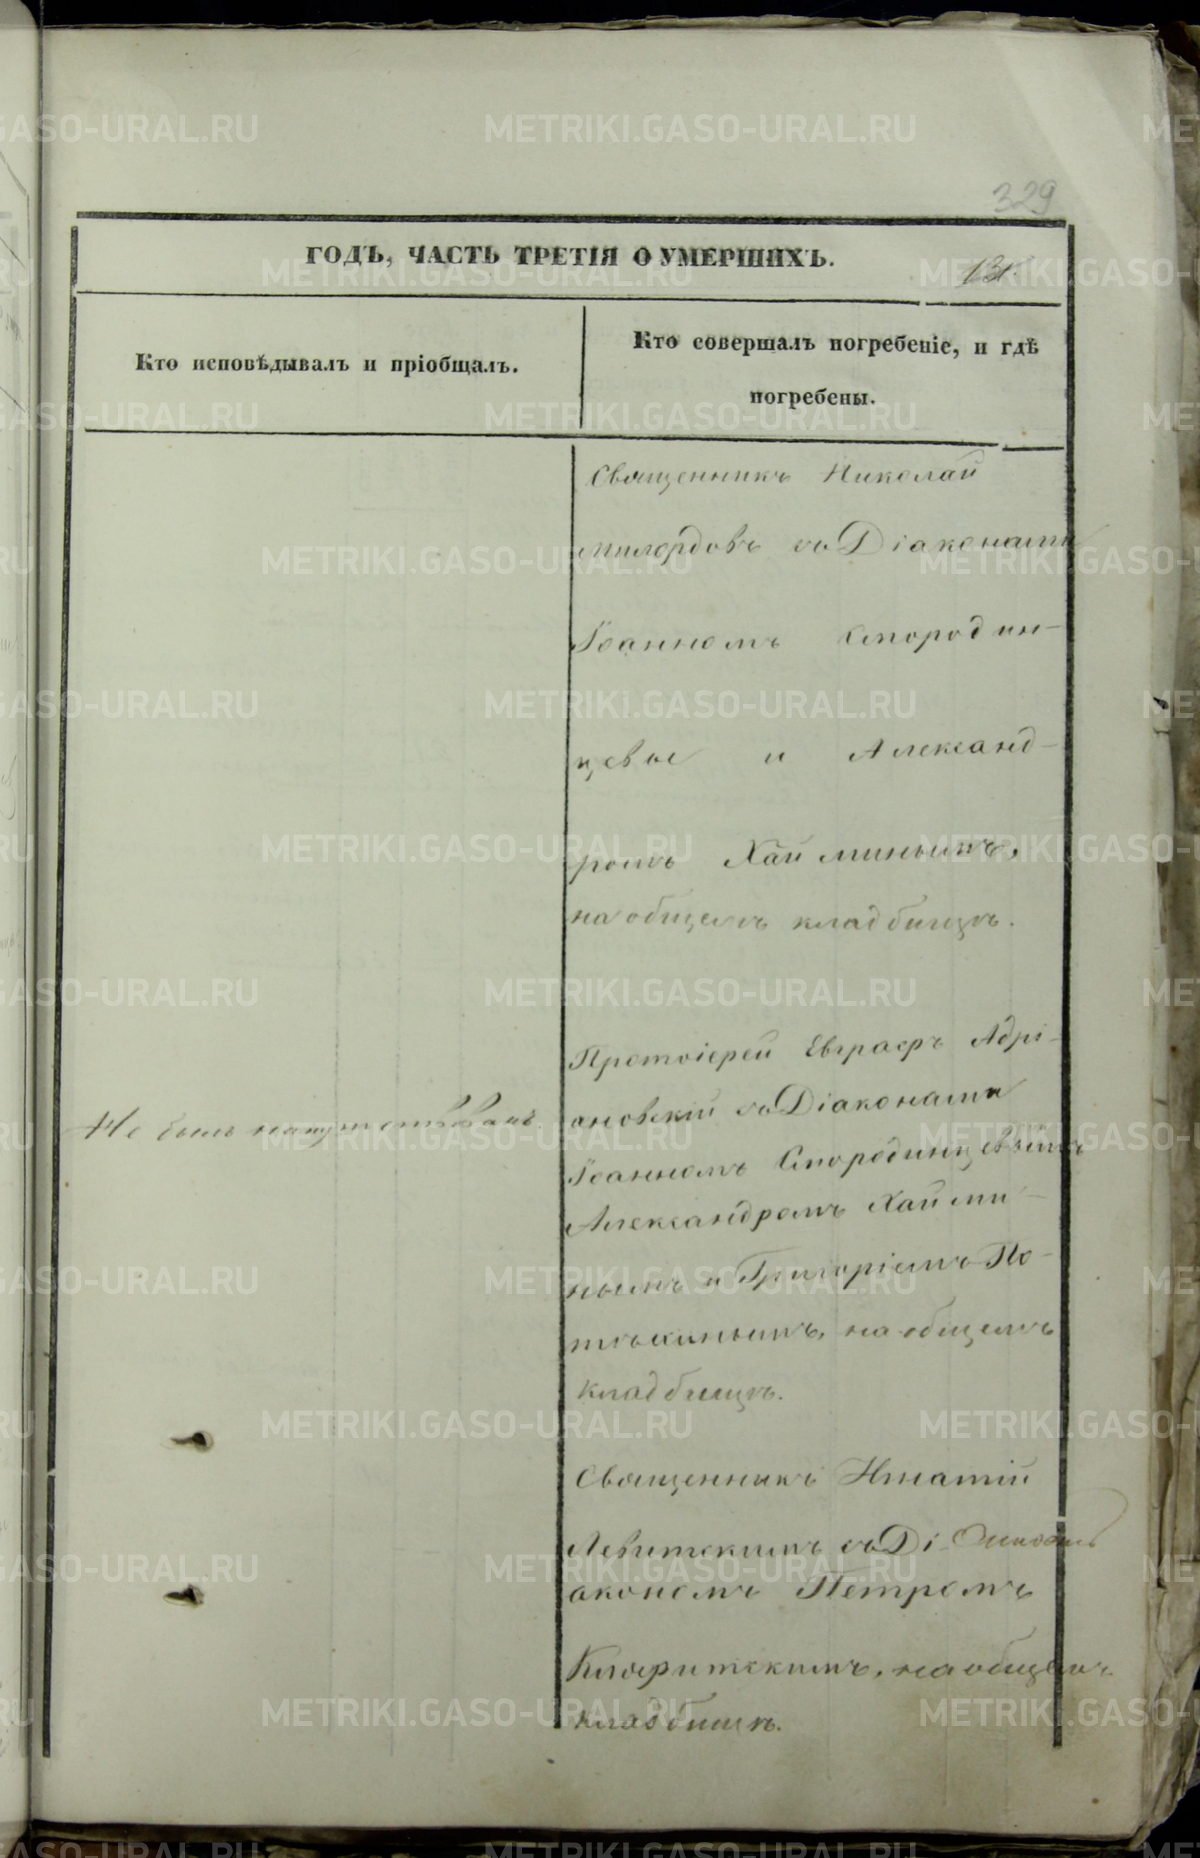 329
ГОДЪ, ЧАСТЬ ТРЕТІЯ О УМЕРШИХЪ.
Кто исповѣдывалъ и пріобщалъ.
Кто совершалъ погребеніе, и гдѣ
погребены.
Священникъ Николай
Милордовъ съ Діаконами
Іоанномъ Смородин-
цевые и Александ-
ромъ Хайминымъ,
на общемъ кладбищѣ.
Не былъ напутствованъ.
Протоіерей Евграфъ Адрі-
ановскій съ Діаконами
Іоанномъ Смородинцевымъ
Александромъ Хайми-
нымъ и Григоріемъ По-
техинымъ, на общемъ
кладбищѣ.
Священникъ Игнатій
Левитскимъ съ Ді-
акономъ Петромъ
на общемъ
кладбищѣ.
METRIKI.GASO-URAL.RU